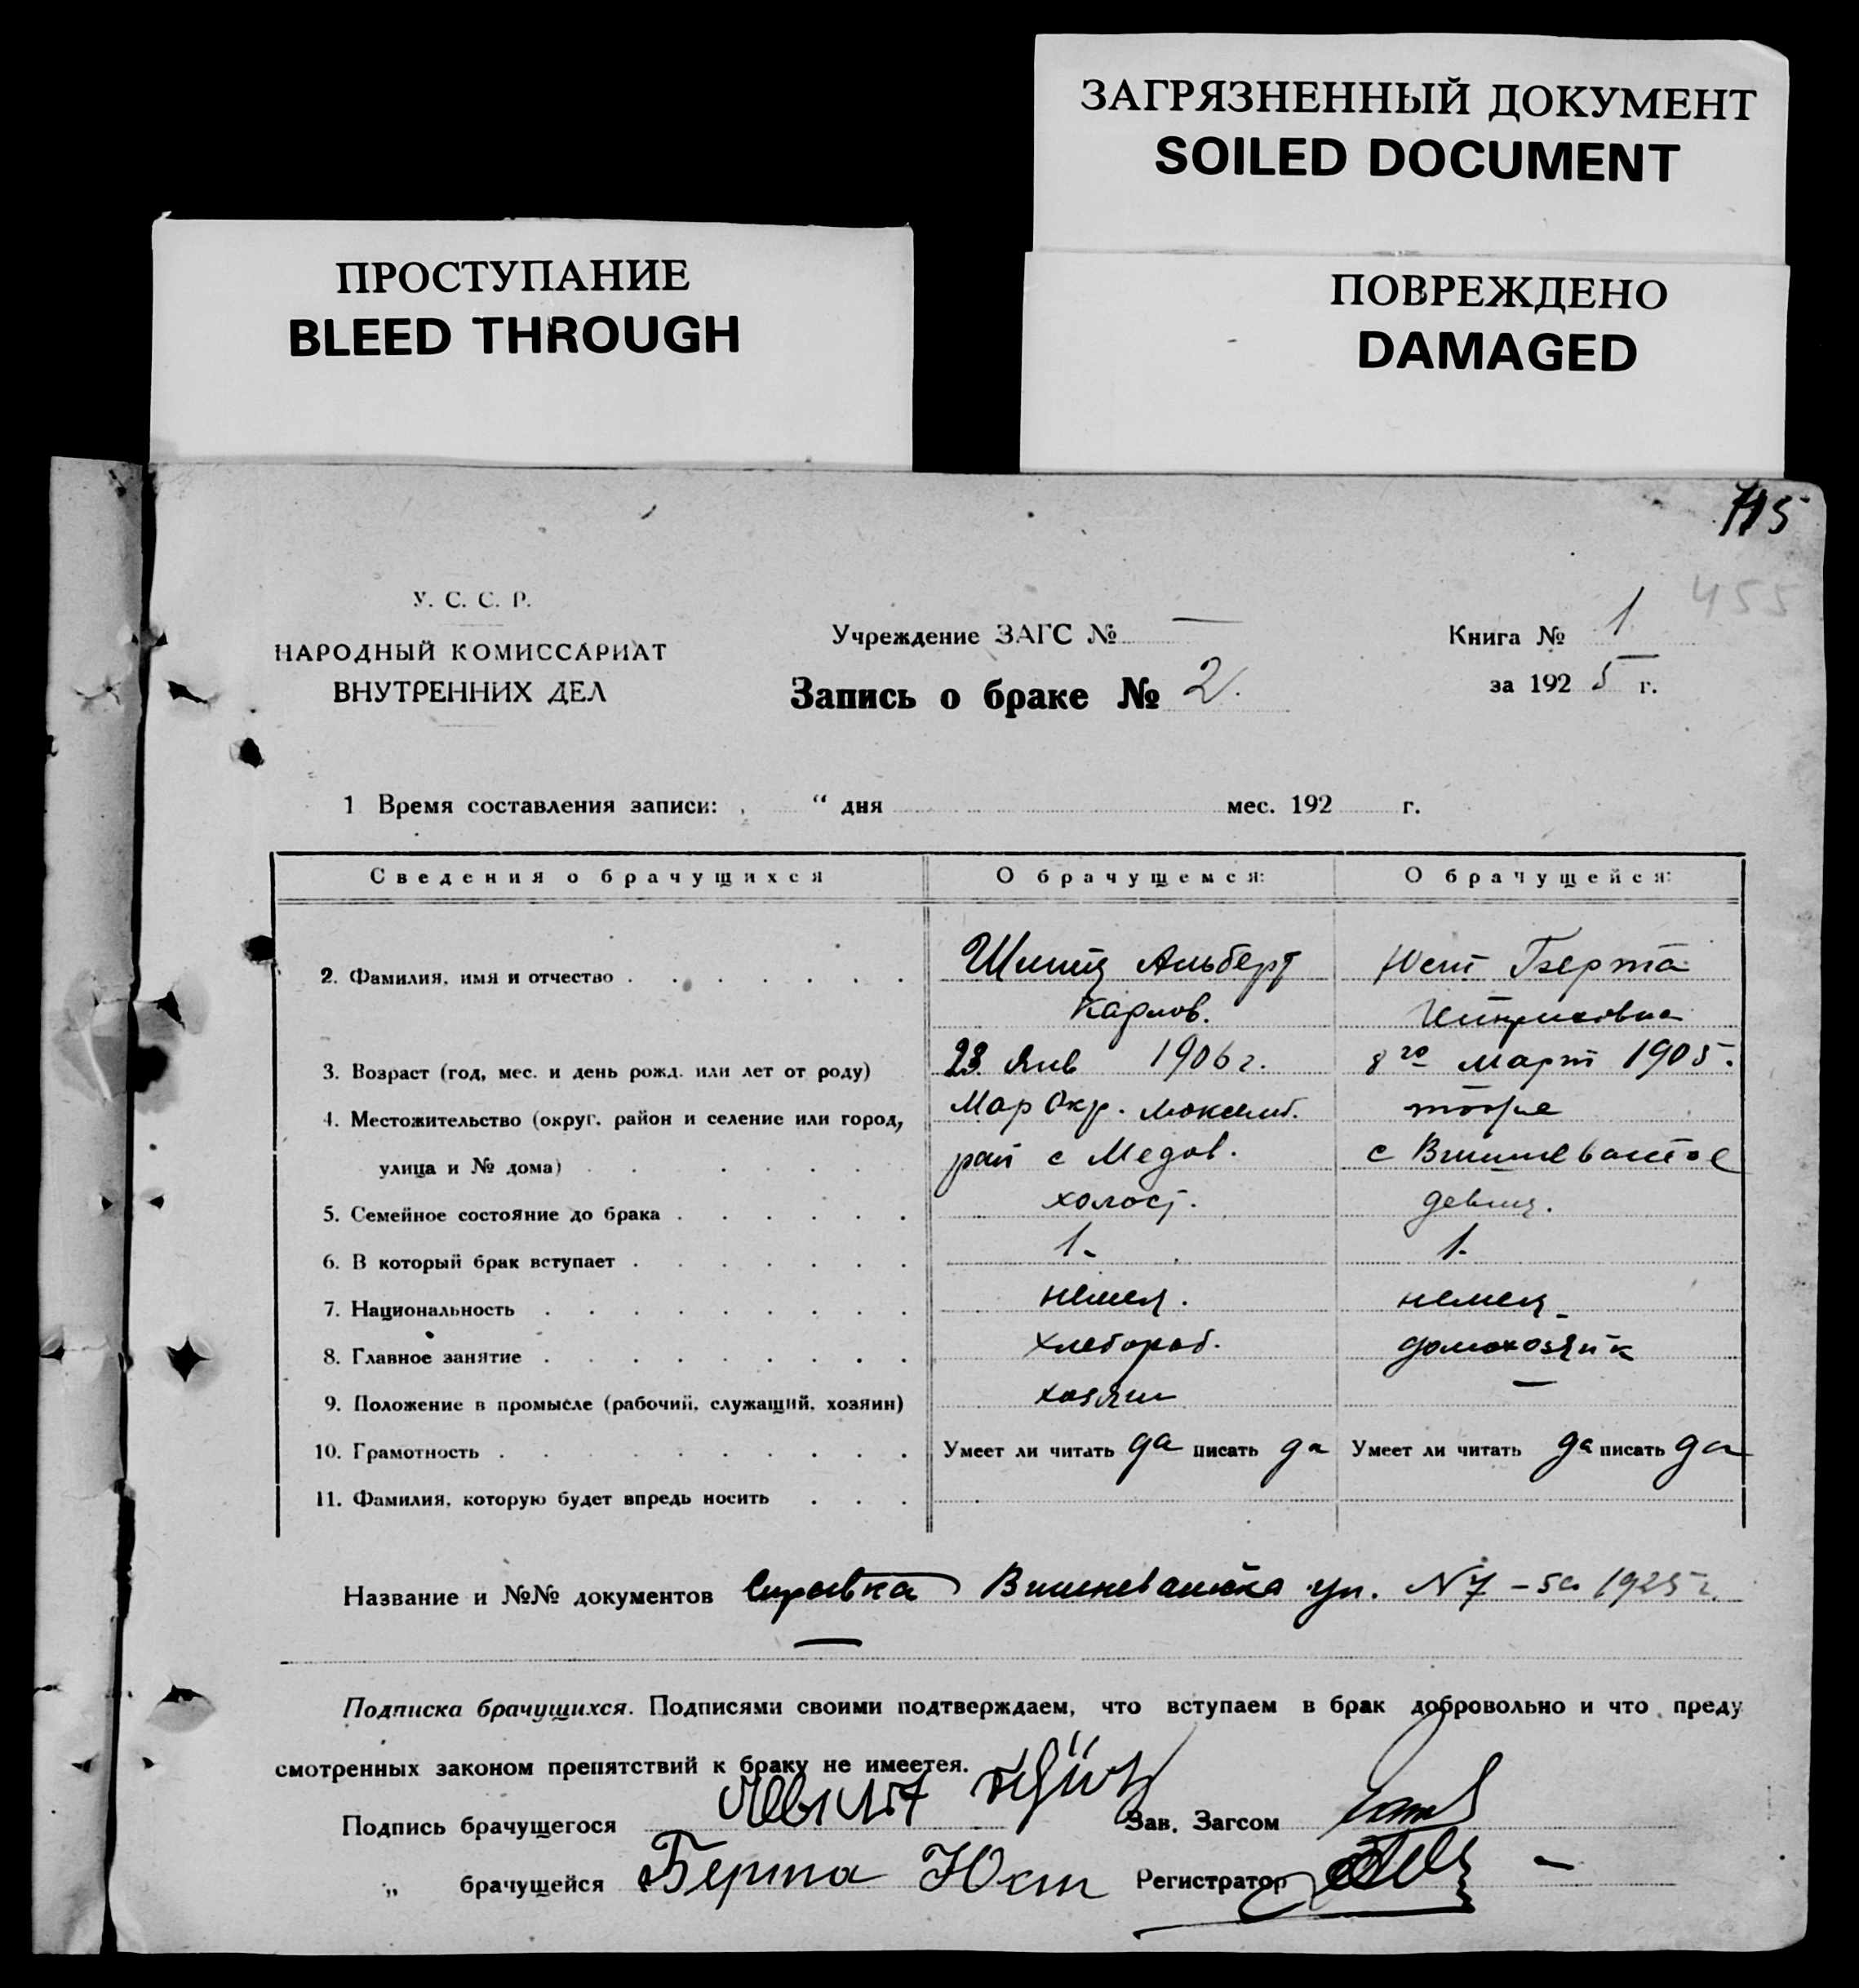 ЗАГРЯЗНЕННЫЙ ДОКУМЕНТ
SOILED DOCUMENT
ПРОСТУПАНИЕ
BLEED THROUGH
ПОВРЕЖДЕНО
DAMAGED
455
У. С. С. Р.
НАРОДНЫЙ КОМИССАРИАТ
ВНУТРЕННИХ ДЕЛ
Учреждение ЗАГС № —
Запись о браке № 2.
Книга № 1
за 1925 г.
1 Время составления записи: „ “ дня мес. 192 г.
Сведения о брачущихся О брачущемся: О брачущейся:
2. Фамилия, имя и отчество Альберт Юст Берта
Карлов.
3. Возраст (год, мес. и день рожд. или лет от роду) 23 Янв 1906 г. 8го Март 1905.
4. Местожительство (округ, район и селение или город, Мар Окр. Люксемб. тоже
улица и № дома) рай с Медов. с Вишневатое
5. Семейное состояние до брака холост. девиц.
6. В который брак вступает 1. 1.
7. Национальность немец. немец
8. Главное занятие хлебороб. домохозяйк
9. Положение в промысле (рабочий, служащий, хозяин) хозяин —
10. Грамотность Умеет ли читать да писать да Умеет ли читать да писать да
11. Фамилия, которую будет впредь носить
Название и №№ документов Справка уп. N 7 1925 г.
Подписка брачущихся. Подписями своими подтверждаем, что вступаем в брак добровольно и что преду
смотренных законом препятствий к браку не имеется.
Подпись брачущегося Зав. Загсом
„ брачущейся Берта Юст Регистратор